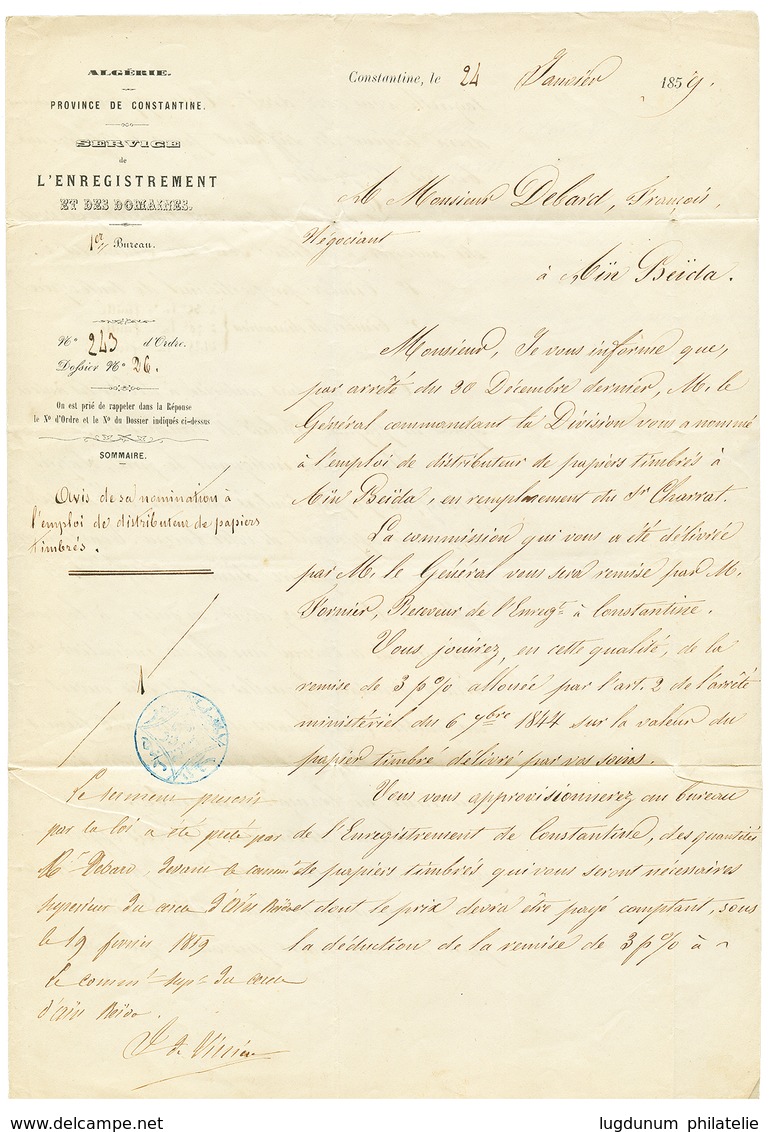 ALGÉRIE.
PROVINCE DE CONSTANTINE.
SERVICE
de
L'ENREGISTREMENT
ET DES DOMAINES.
1er/ Bureau.
N° 243 d'Ordre.
Dossier N° 26.
On est prié de rappeler dans la Réponse
le N° d'Ordre et le N° du Dossier indiqués ci-dessus
SOMMAIRE.
Avis de sa nomination à
l'emploi de distributeur de papiers
timbrés.
Constantine, le 24 Janvier 1859.
A Monsieur Debard, François,
Négociant
à Aïn Beïda.
Monsieur, Je vous informe que,
par arrêté du 20 Décembre dernier, M. le
Général commandant la Division vous a nommé
à l'emploi de distributeur de papiers timbrés à
Aïn Beïda, en remplacement du Sr Charrat.
La commission qui vous a été délivrée
par M. le Général vous sera remise par M.
Fornier, Receveur de l'Enregt. à Constantine.
Vous jouirez, en cette qualité, de la
remise de 3 p% allouée par l'art. 2 de l'arrêté
ministériel du 6 7bre 1844 sur la valeur du
papier timbré délivré par vos soins.
Vous vous approvisionnerez, au bureau
de l'Enregistrement de Constantine, des quantités
de papiers timbrés qui vous seront nécessaires
et dont le prix devra être payé comptant, sous
la déduction de la remise de 3 p% à
Le serment prescrit
par la loi a été prêté par
Mr Debard, devant le commt
supérieur du cercle d'Aïn Beïda
le 19 février 1859
Le commt supr du cercle
d'Aïn Beïda.
www.delcampe.net
lugdunum philatelie